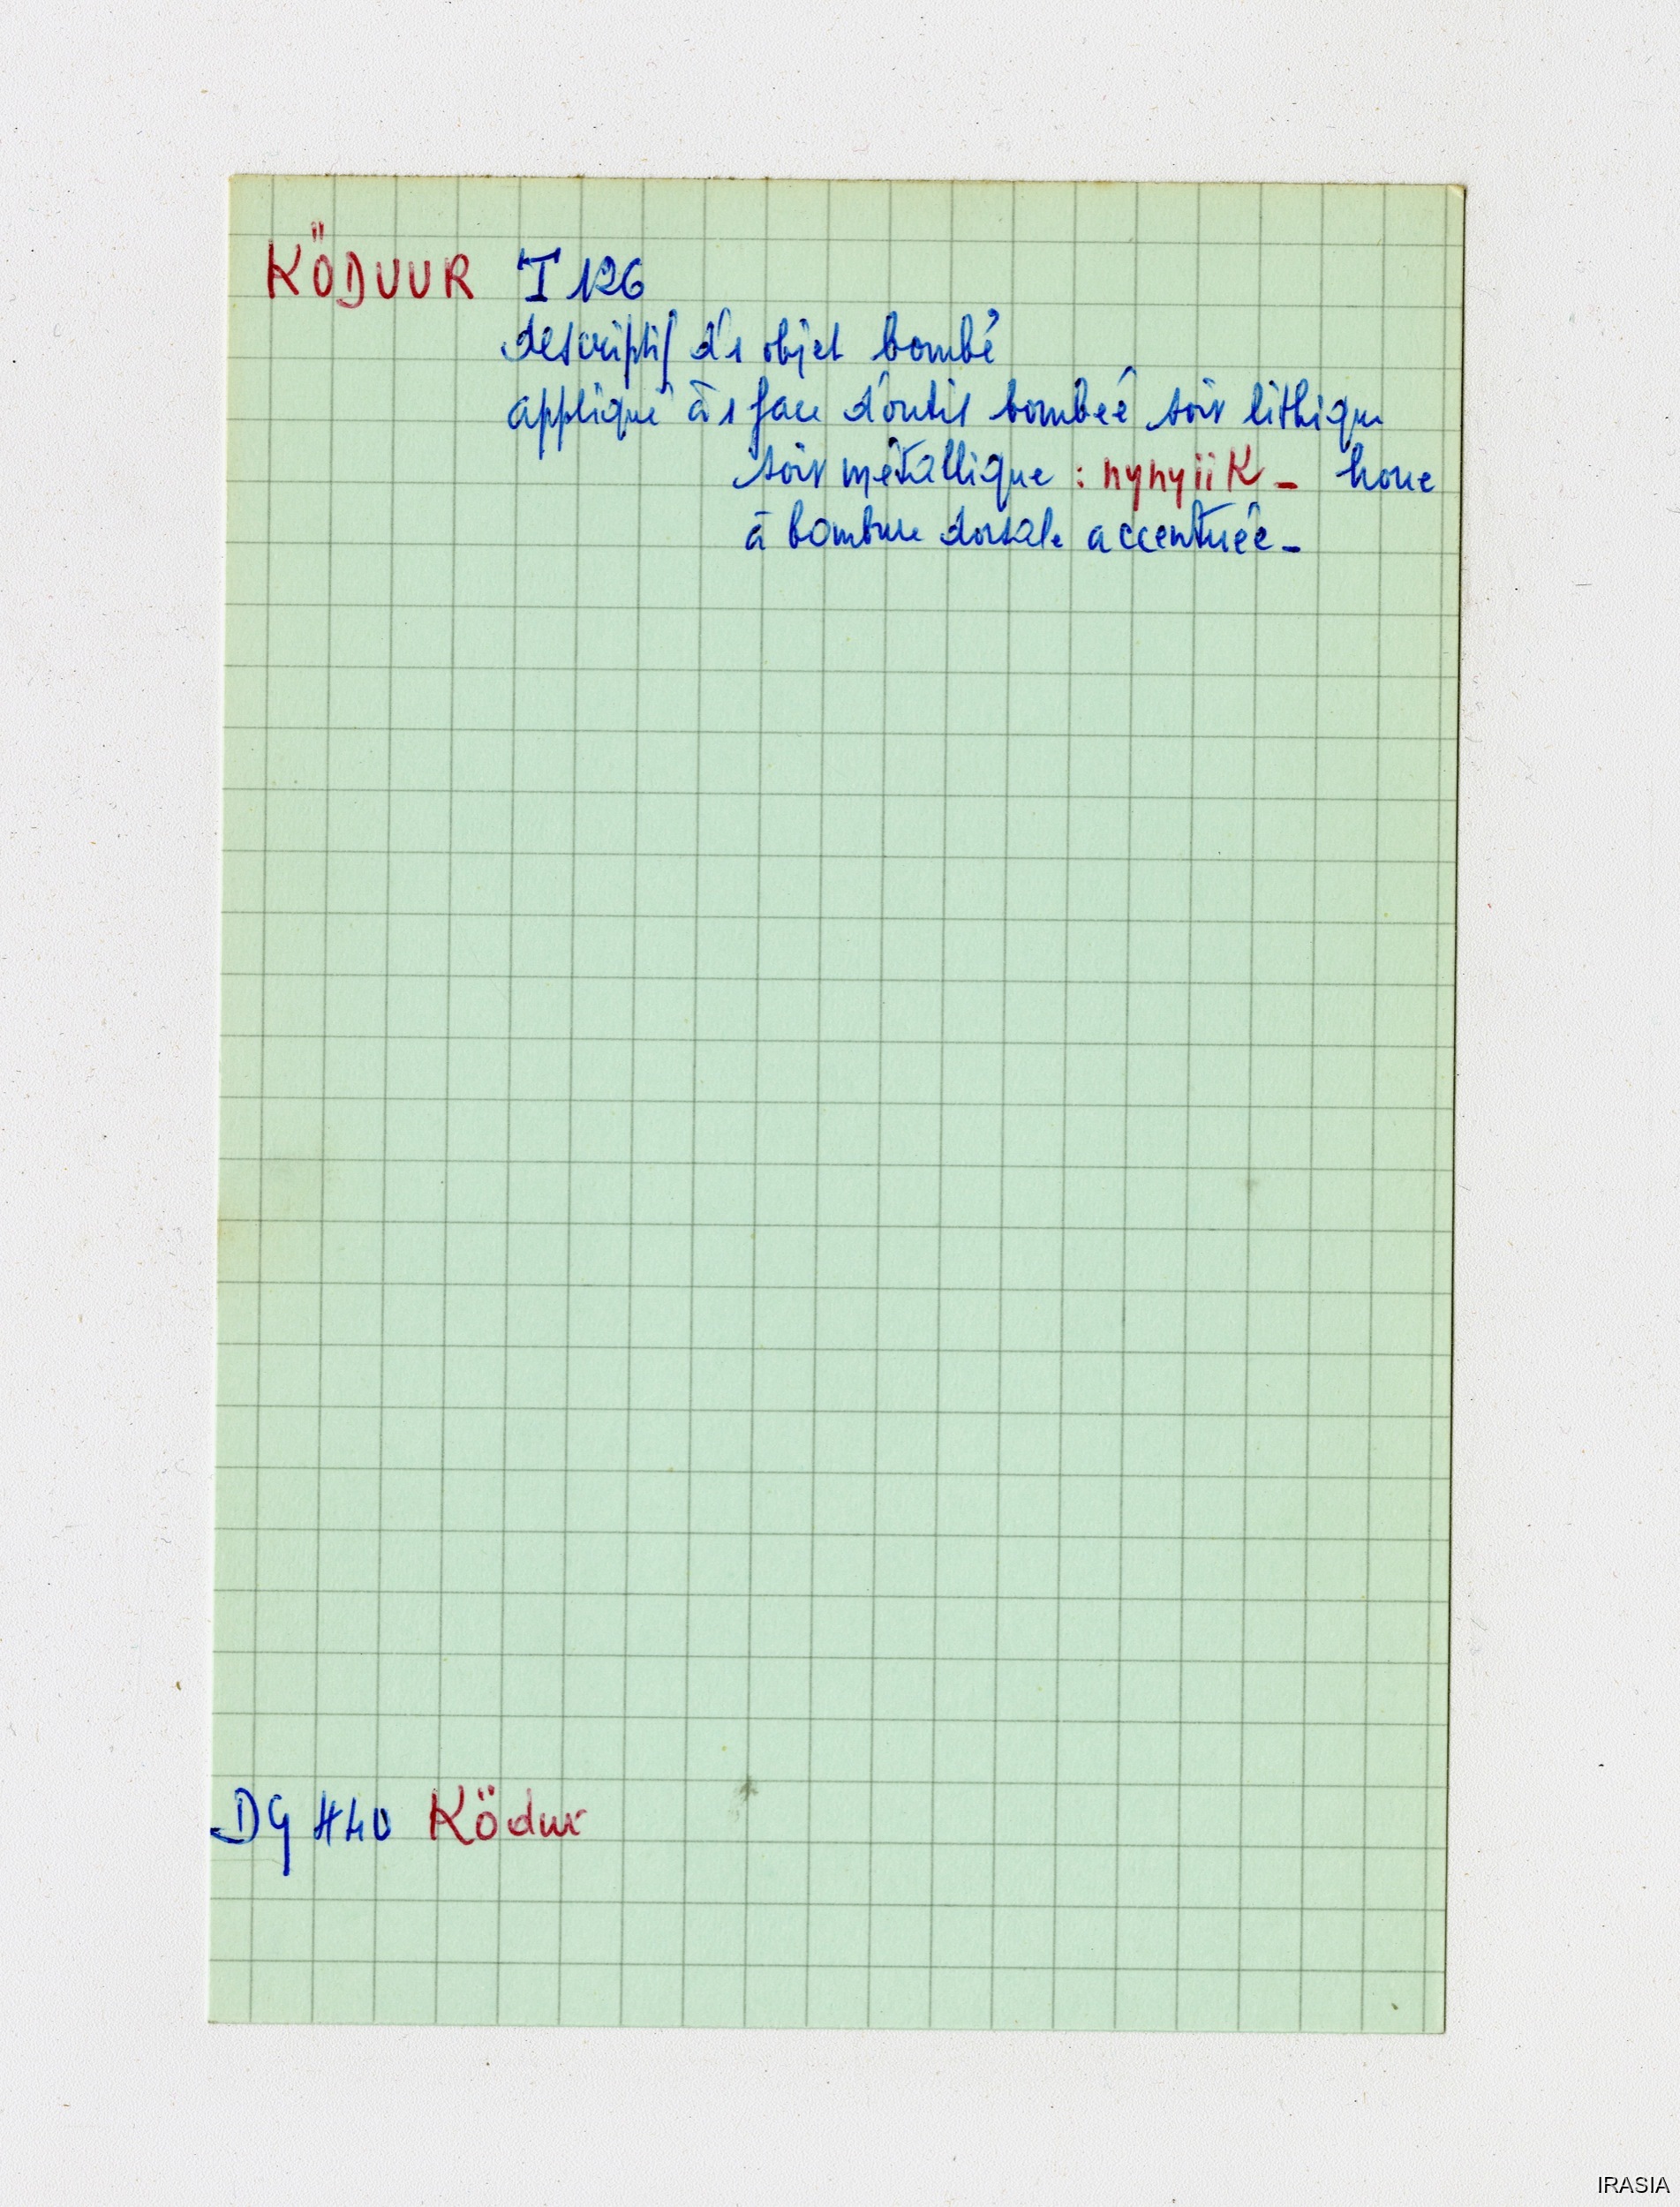 KÖDUUR I 126
descriptif d'1 objet bombé
appliqué à 1 face d'outil bombée soit lithique
soit métallique : nynyiiK - houe
à bombure dorsale accentuée -
DG Ködur
IRASIA